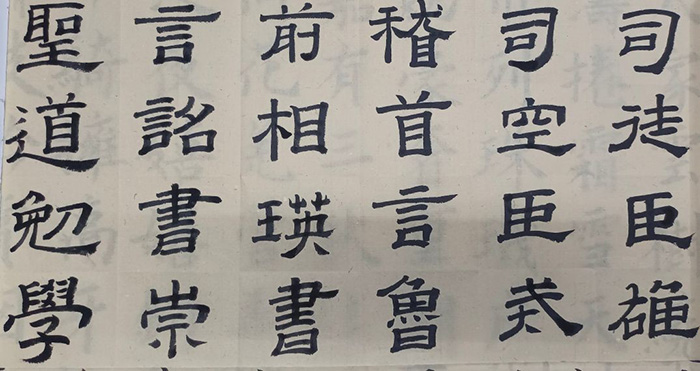 司徒臣雄
司空臣戒
稽首言魯
前相瑛書
言詔書崇
聖道勉學